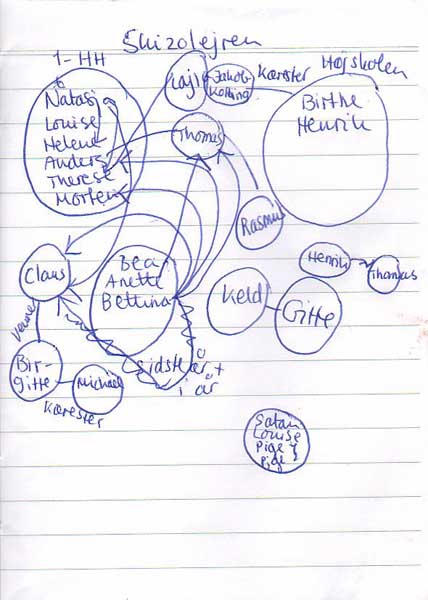 Skizolejren
1-HH
Natasj
Louise
Helene
Anders
Therese
Morten
Kaj
Jakob
Kolling
Kærester
Højskolen
Birthe
Henrik
Thomas
Rasmus
Claus
Bea
Anetti
Bettina
Keld
Gitte
Henrik
Thomas
Venner
Bir-
gitte
Michael
Kærester
sidste år +
i år
Satan
Louise
Pige
Pige